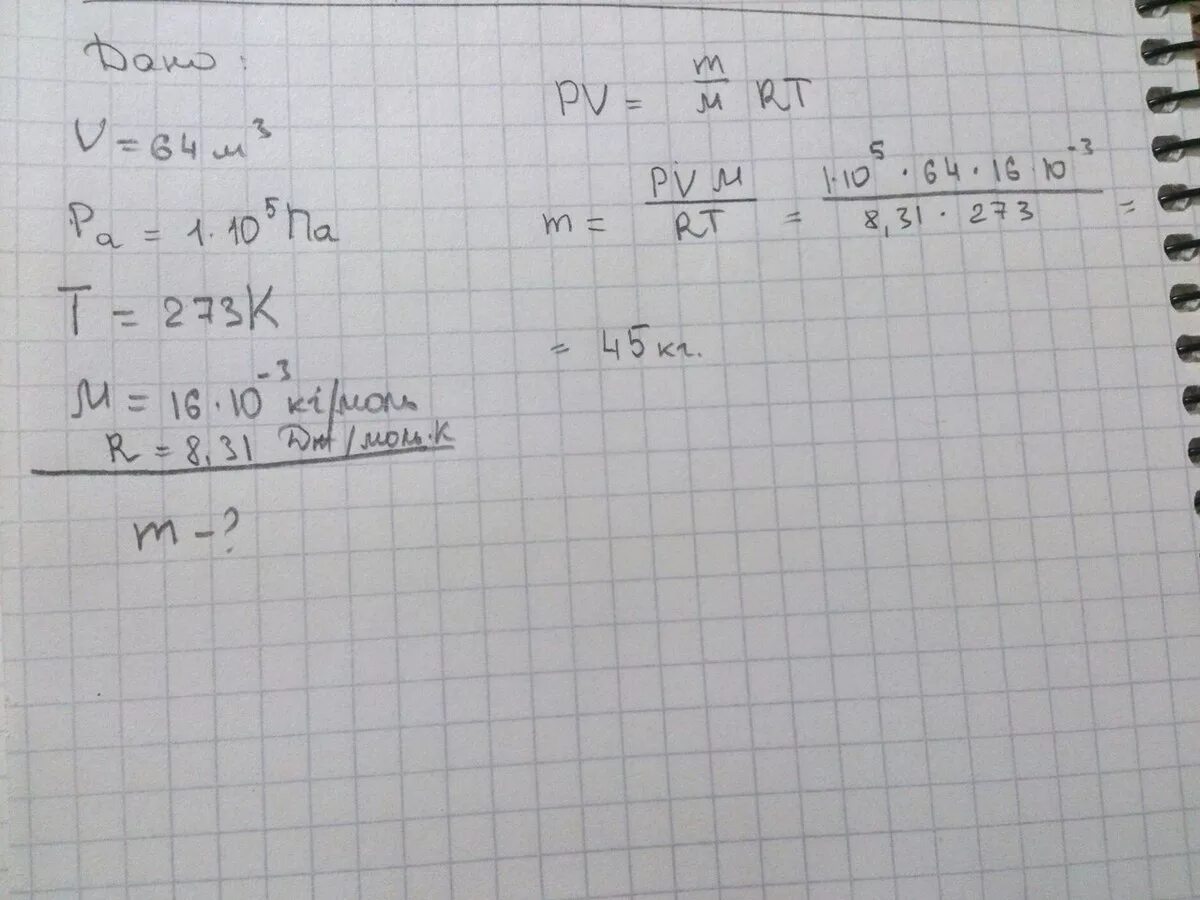 Дано:
V = 64 м³
Pa = 1·10⁵ Па
T = 273K
M = 16·10⁻³ кг/моль
R = 8,31 Дж/моль·К
m - ?
PV = m/M RT
m = PVM/RT = 1·10⁵·64·16·10⁻³/8,31·273 =
= 45 кг.